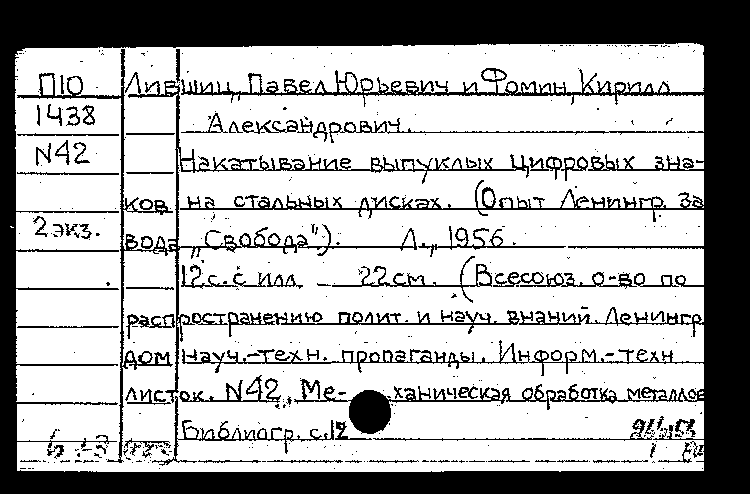 П10 Лившиц, Павел Юрьевич и Фомин, Кирилл
1438 Александрович.
N42 Накатывание выпуклых цифровых зна-
ков на стальных дисках. (Опыт Ленингр. за
2 экз. вода „Свобода"). Л., 1956.
12 с. с илл. 22 см. (Всесоюз. о-во по
распространению полит. и науч. знаний. Ленингр.
дом науч.-техн. пропаганды. Информ.-техн
листок. N42, Ме- ханическая обработка металлов
Библиогр. с. 12